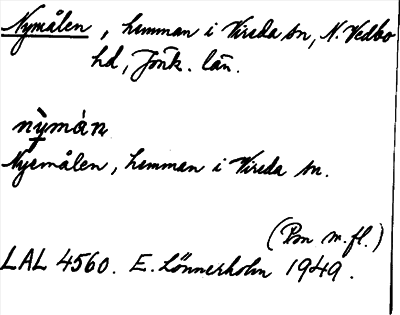 Nymålen, hemman i Vireda sn, N. Vedbo
hd, Jönk. län.
nỳmàn
Nysmålen, hemman i Vireda sn.
(Bsn m.fl.)
LAL 4560. E. Lönnerholm 1949.